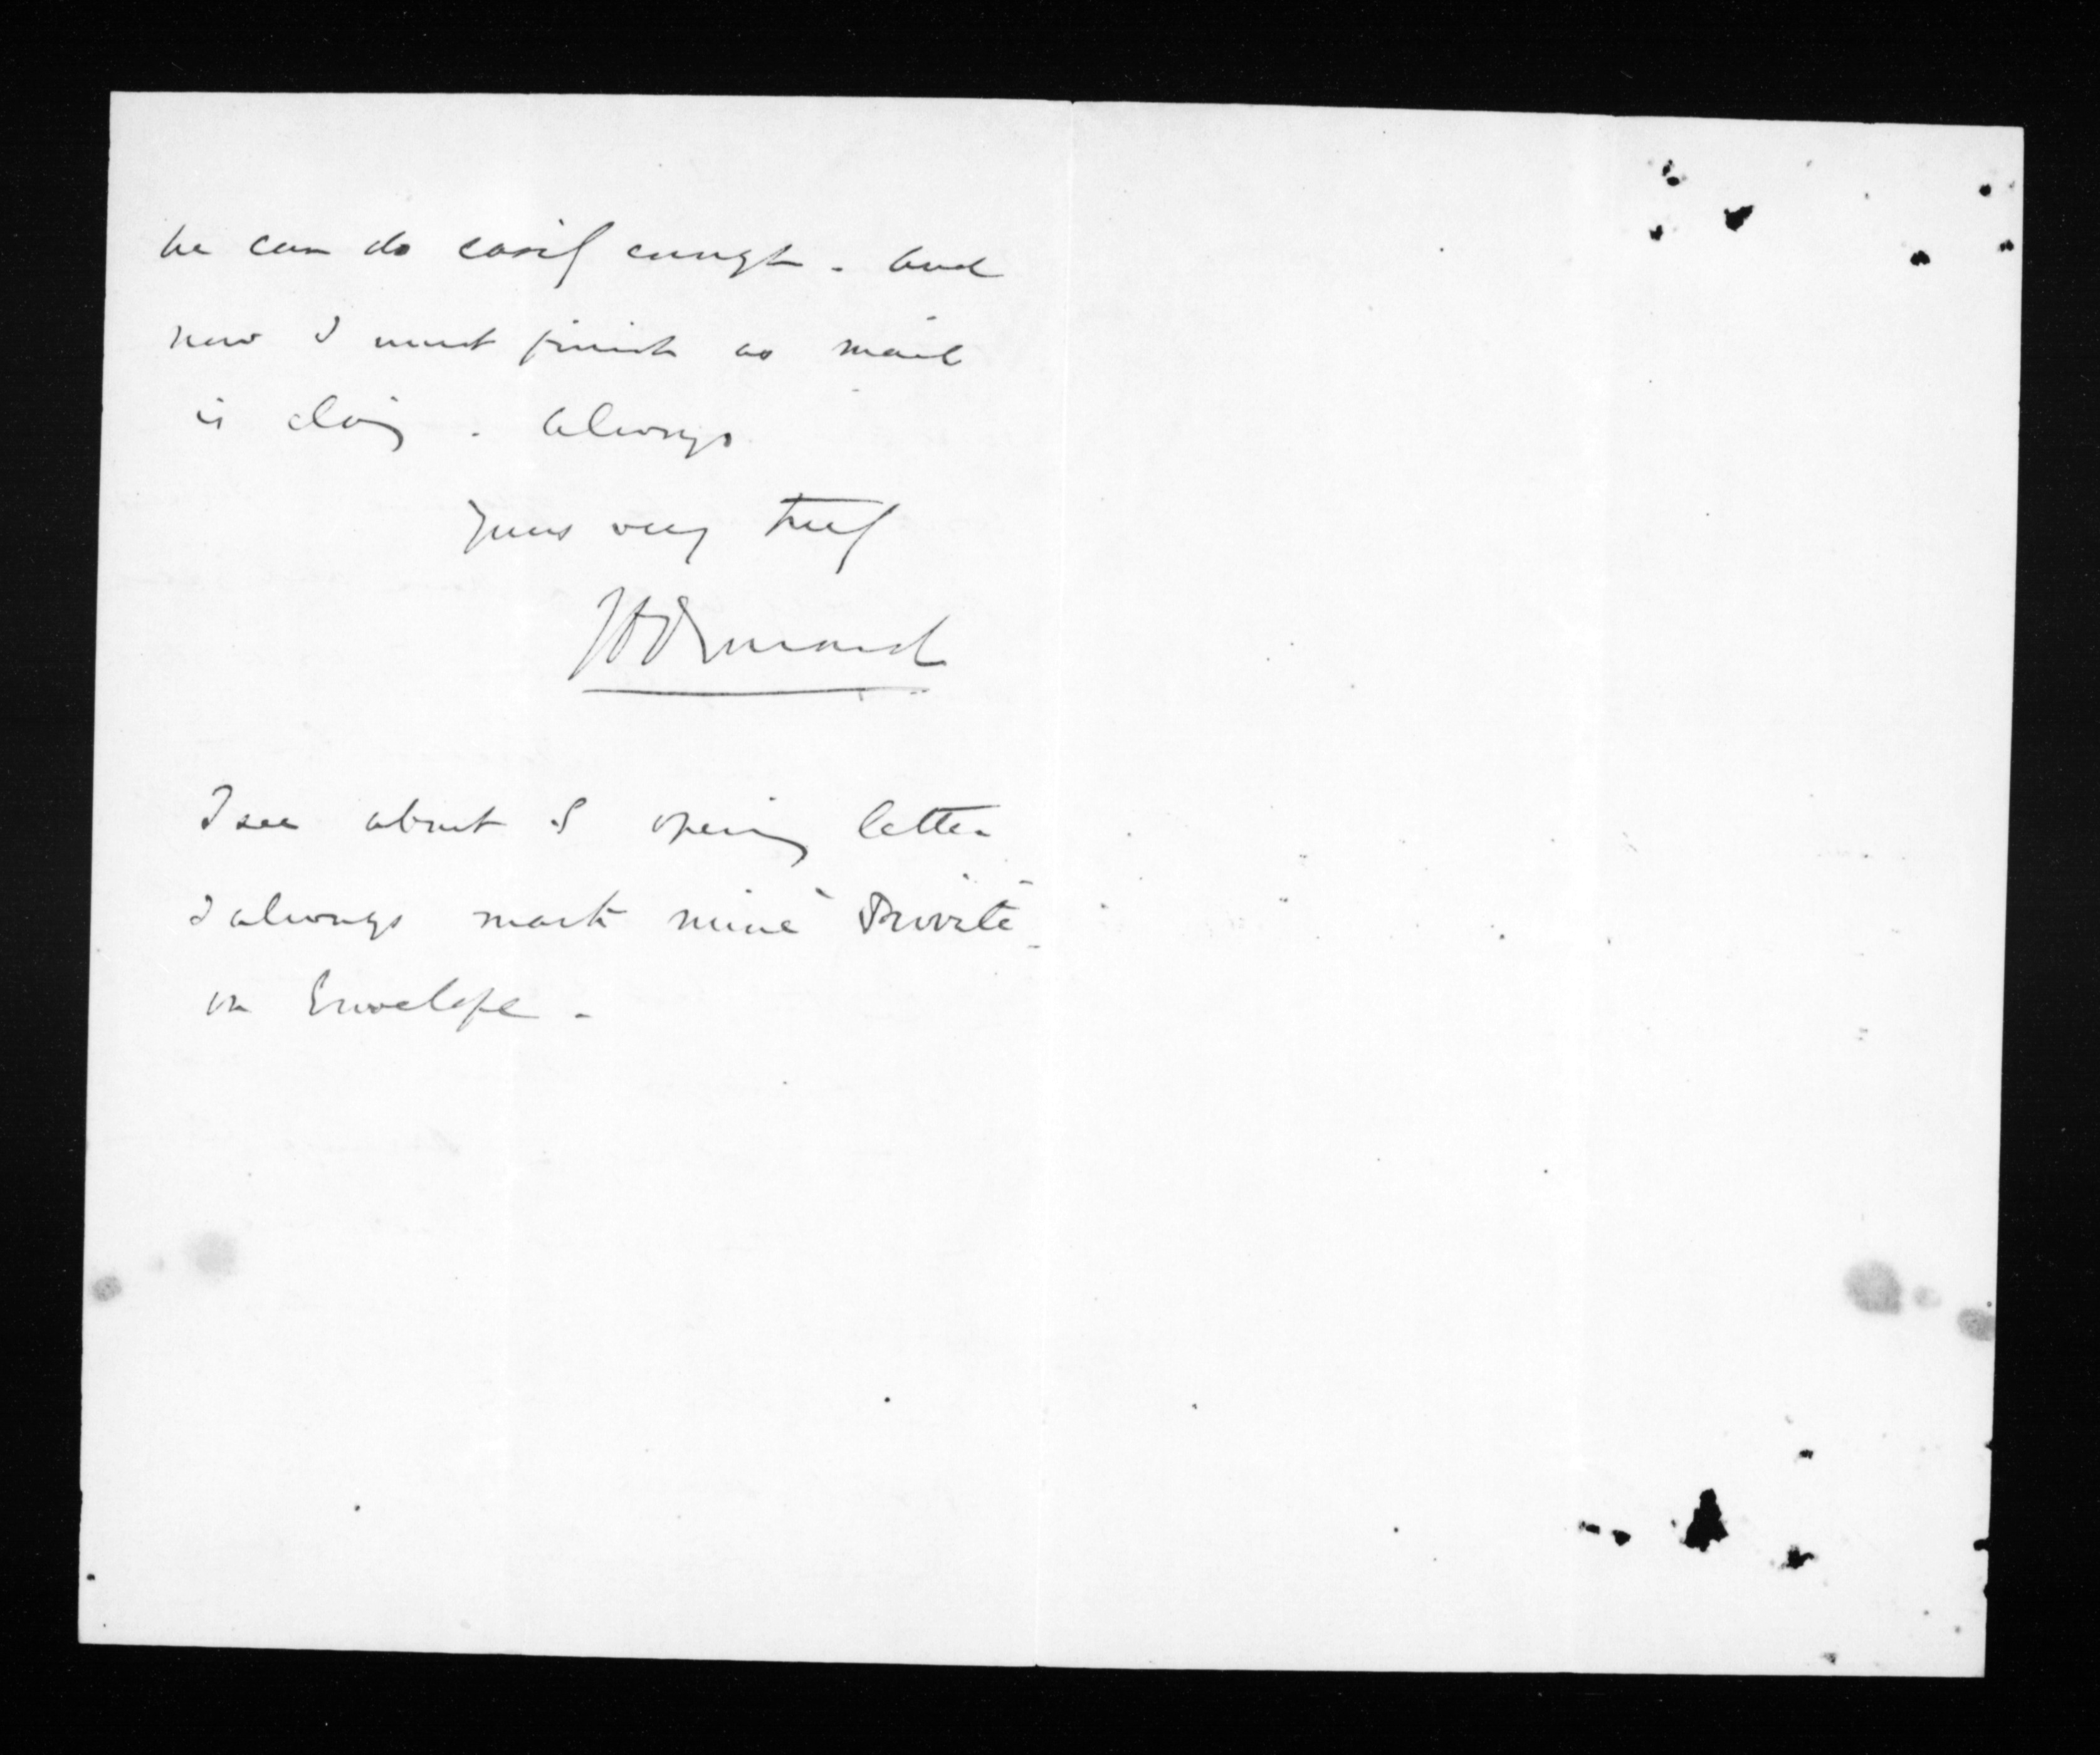 he can do easily enough. And
now I must finish as mail
is closing. Always
Yours very truly
J D Ormond
I see about S opening letter
I always mark mine "Private"
on Envelope.